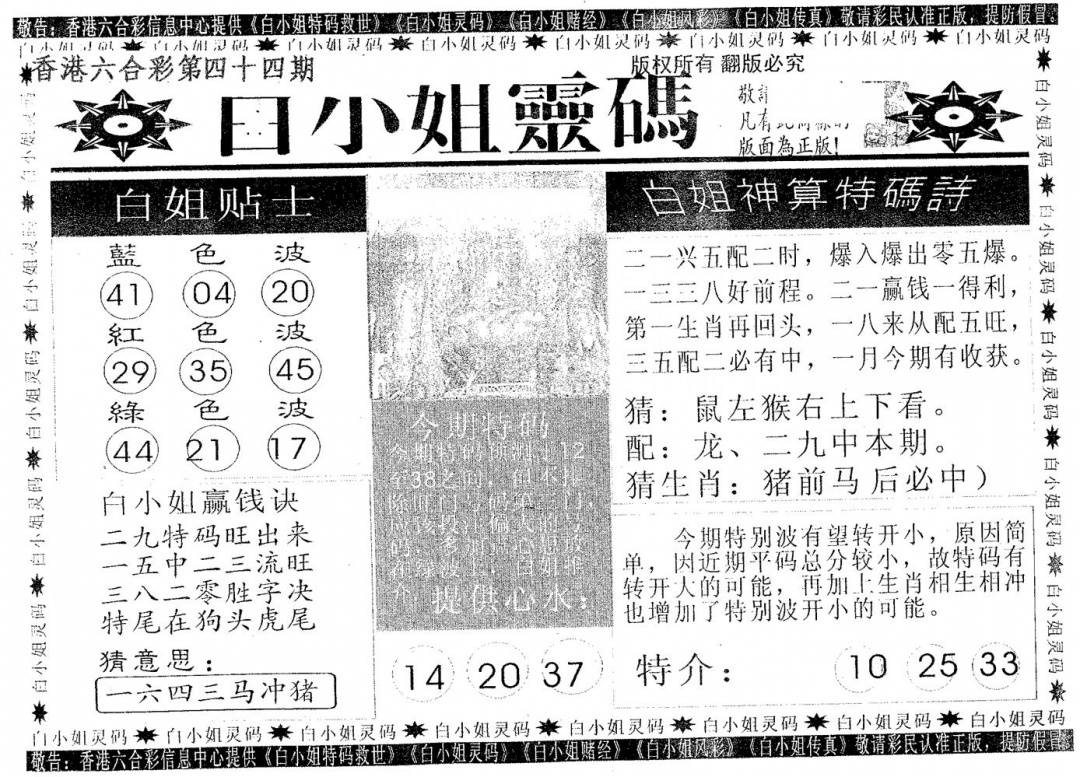 敬告：香港六合彩信息中心提供《白小姐特码救世》《白小姐灵码》《白小姐赌经》《白小姐风彩》《白小姐传真》敬请彩民认准正版，提防假冒。
白小姐灵码 白小姐特码 白小姐灵码 白小姐灵码 白小姐灵码 白小姐灵码 白小姐灵码 白小姐灵码
香港六合彩第四十四期
版权所有 翻版必究
白小姐靈碼
敬請
凡有此商標的
版面為正版！
白姐贴士
藍 色 波
41 04 20
紅 色 波
29 35 45
綠 色 波
44 21 17
白小姐赢钱诀
二九特码旺出来
一五中二三流旺
三八二零胜字决
特尾在狗头虎尾
猜意思：
一六四三马冲猪
今期特码
提供心水：
14 20 37
白姐神算特碼詩
二一兴五配二时，爆入爆出零五爆。
一三三八好前程。二一赢钱一得利，
第一生肖再回头，一八来从配五旺，
三五配二必有中，一月今期有收获。
猜：鼠左猴右上下看。
配：龙、二九中本期。
猜生肖：猪前马后必中）
今期特别波有望转开小，原因简
单，因近期平码总分较小，故特码有
转开大的可能，再加上生肖相生相冲
也增加了特别波开小的可能。
特介：
10 25 33
白小姐灵码 白小姐灵码 白小姐灵码 白小姐灵码
白小姐灵码 白小姐灵码 白小姐灵码 白小姐灵码
白小姐灵码 白小姐灵码 白小姐灵码 白小姐灵码 白小姐灵码 白小姐灵码 白小姐灵码 白小姐灵码
敬告：香港六合彩信息中心提供《白小姐特码救世》《白小姐灵码》《白小姐赌经》《白小姐风彩》《白小姐传真》敬请彩民认准正版，提防假冒